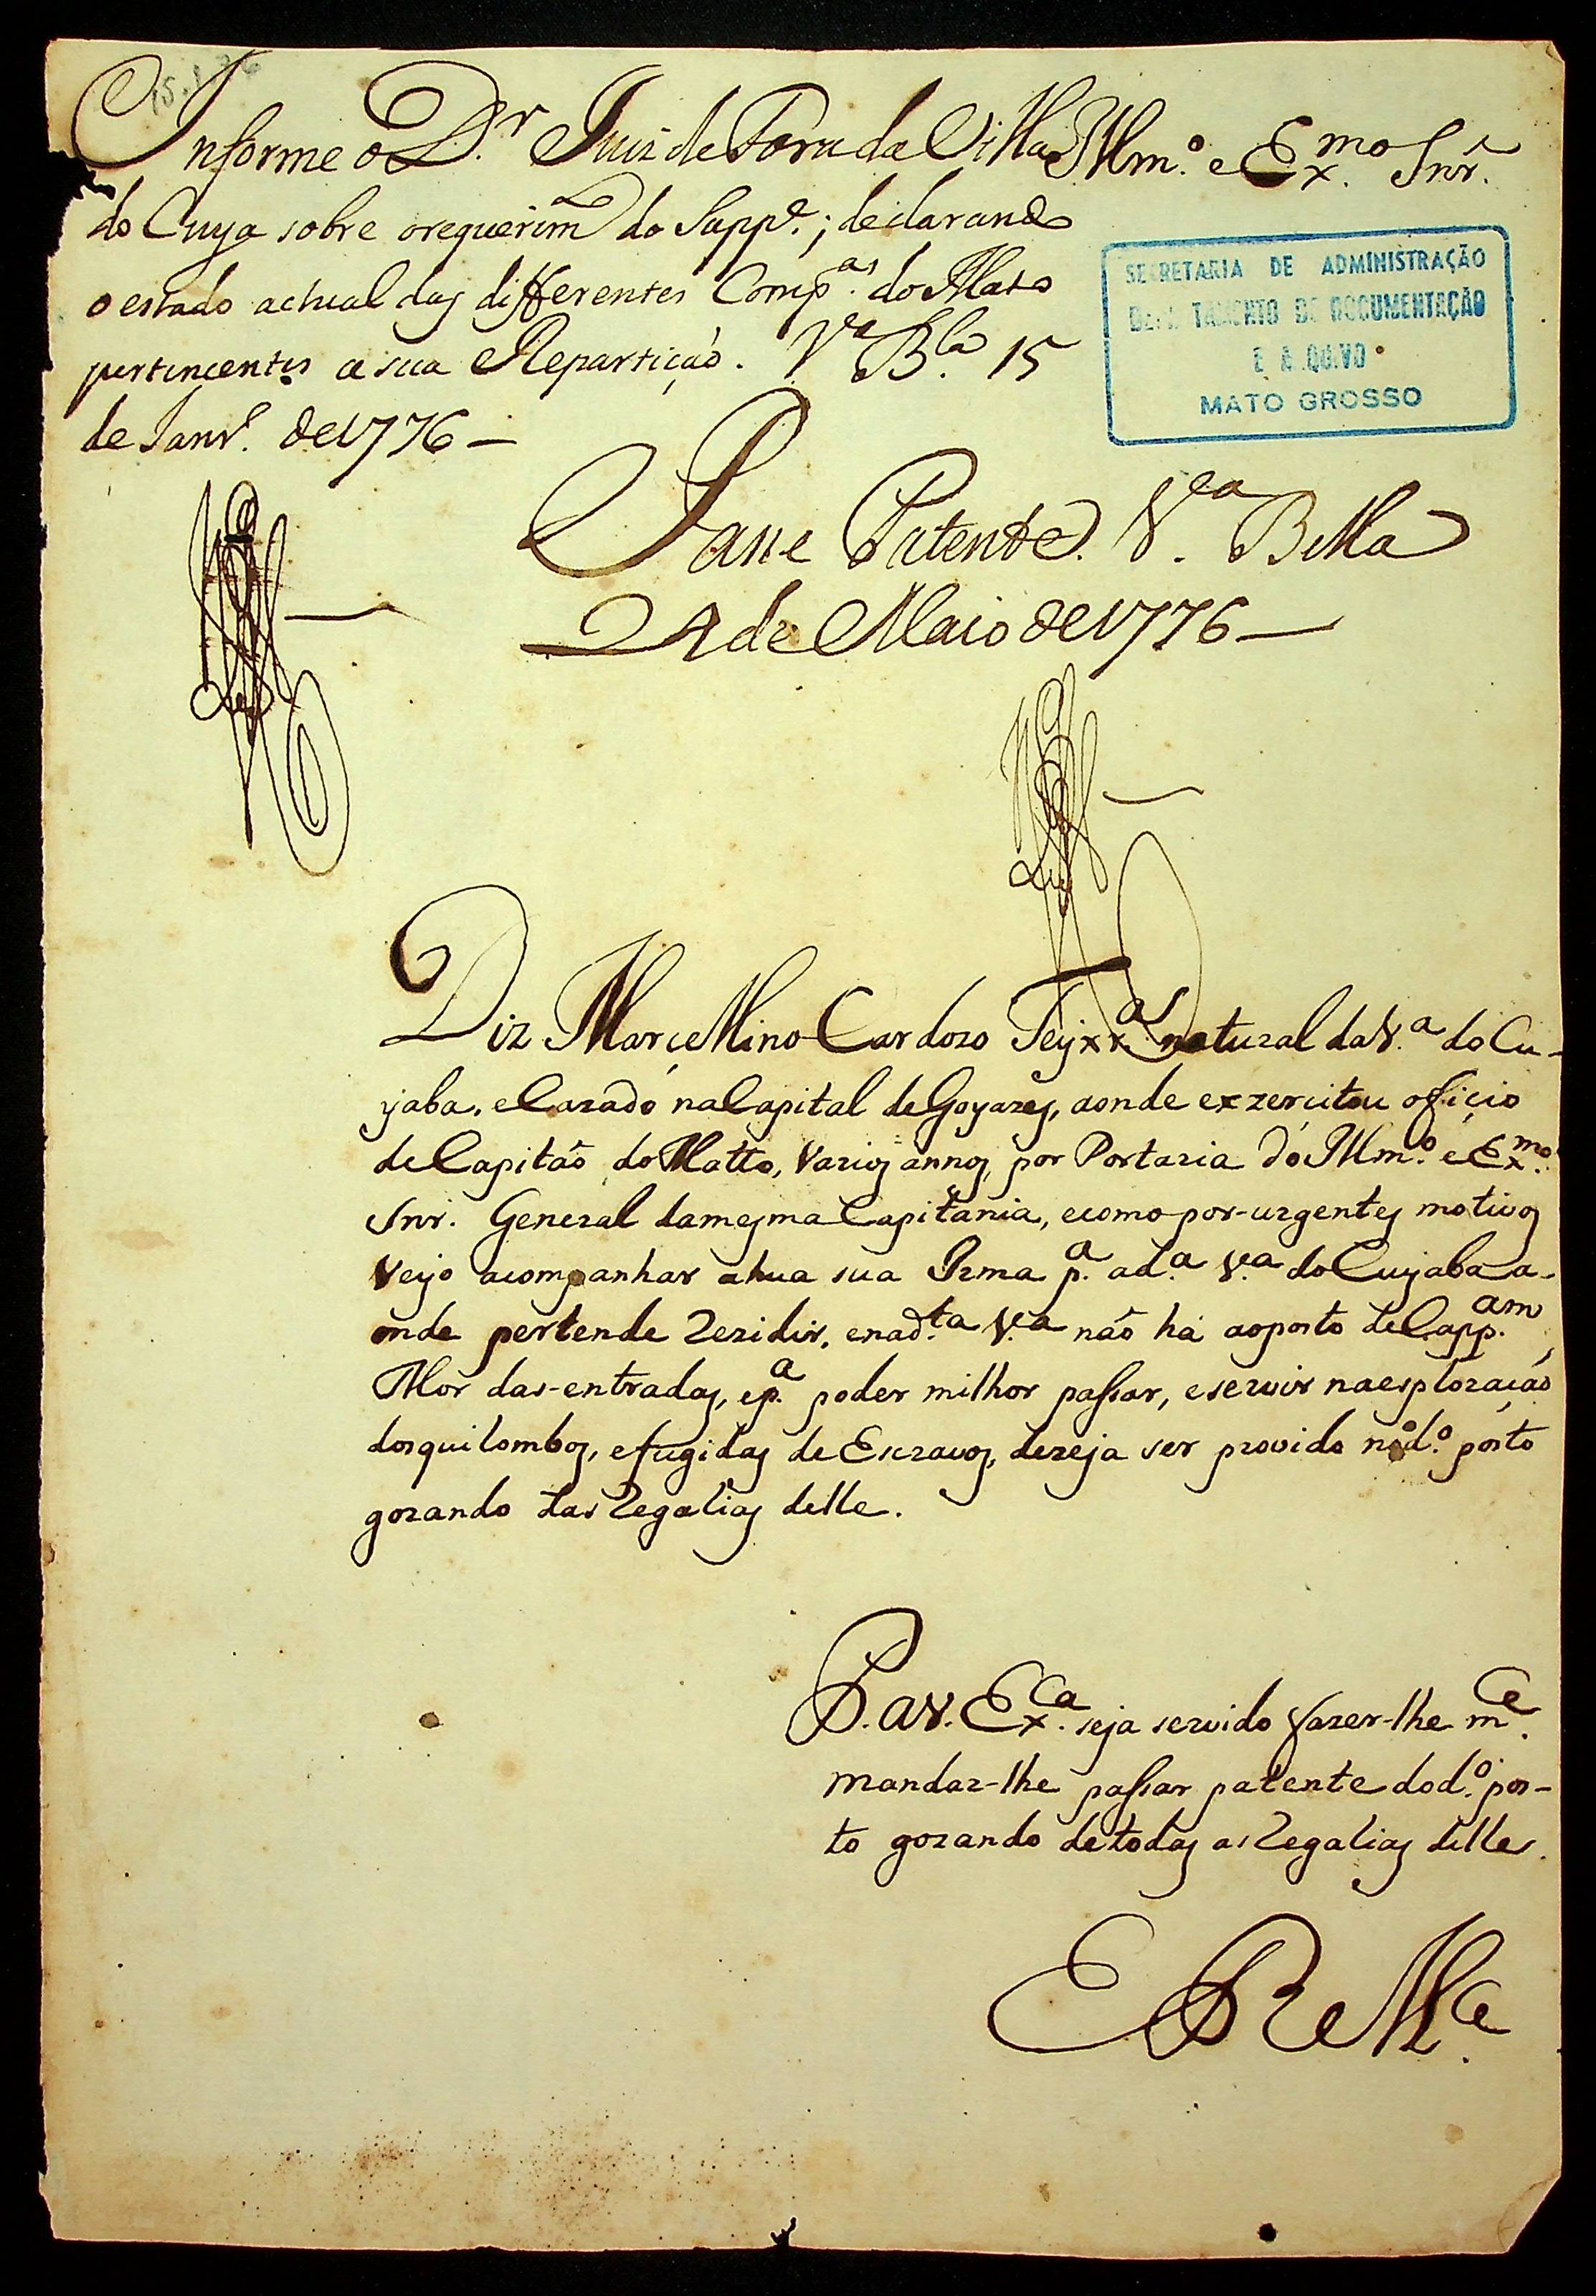 15.1.76
Informe o D.r Juiz de Fora da Villa
do Cuya sobre o requerim.to do Supp.e; declarando
o estado actual das differentes Comp.as do Mato
pertencentes a sua Repartição. V.a B.la 15
de Janr.o de 1776 –
Illm.o e Ex.mo Snr.
SECRETARIA DE ADMINISTRAÇÃO
DEPARTAMENTO DE DOCUMENTAÇÃO
E ARQUIVO
MATO GROSSO
Passe Patente. V.a Bella
24 de Maio de 1776 –
Diz Marcellino Cardozo Teyxr.a natural da V.a do Cu-
yaba, e Cazado na Capital de Goyazes, aonde exzercitou oficio
de Capitão do Matto, varios annos, por Portaria do Illm.o e Ex.mo
Snr. General da mesma Capitania, e como por-urgentes motivos
veyo acompanhar a hua sua Irma p.a a d.a V.a do Cuyaba a-
onde pertende Rezidir, e na d.ta V.a não há ao posto de Capp.am
Mor das-entradas, e p.a poder milhor passar, e servir na esploração
dos quilombos, e fugidas de Escravos, dezeja ser provido no d.o posto
gozando das Regalias delle.
P. a V. Ex.ca seja servido fazer-lhe m.ce
mandar-lhe passar patente do d.o pos-
to gozando de todas as Regalias delle.
E R M.ce